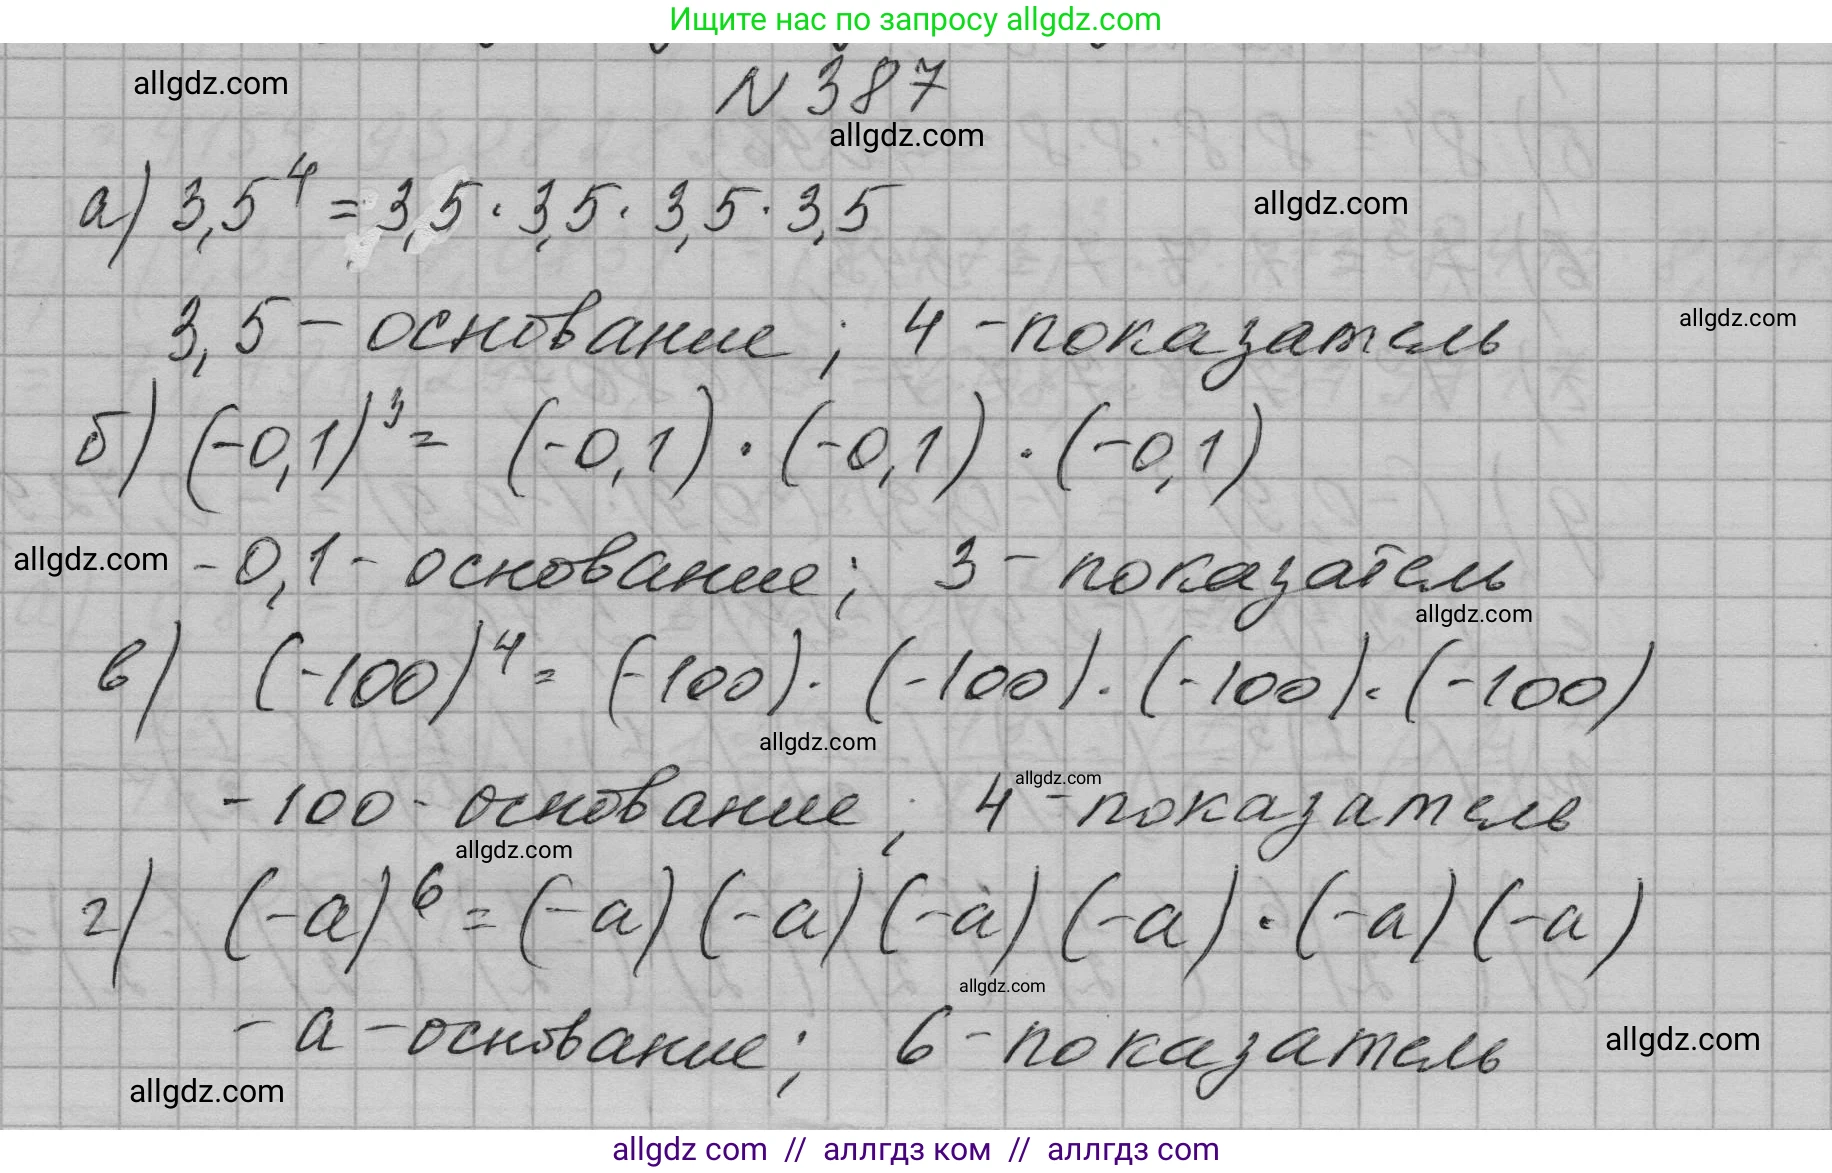 Ищите нас по запросу allgdz.com
allgdz.com
N 387
allgdz.com
а) 3,5⁴ = 3,5 · 3,5 · 3,5 · 3,5
allgdz.com
3,5 – основание ; 4 – показатель
allgdz.com
б) (-0,1)³ = (-0,1) · (-0,1) · (-0,1)
allgdz.com
-0,1 - основание; 3 - показатель
allgdz.com
в) (-100)⁴ = (-100) · (-100) · (-100) · (-100)
allgdz.com
allgdz.com
-100 - основание ; 4 - показатель
allgdz.com
г) (-a)⁶ = (-a) (-a) (-a) (-a) · (-a) (-a)
allgdz.com
- a - основание; 6 - показатель
allgdz.com
allgdz.com
allgdz com // аллгдз ком // аллгдз com